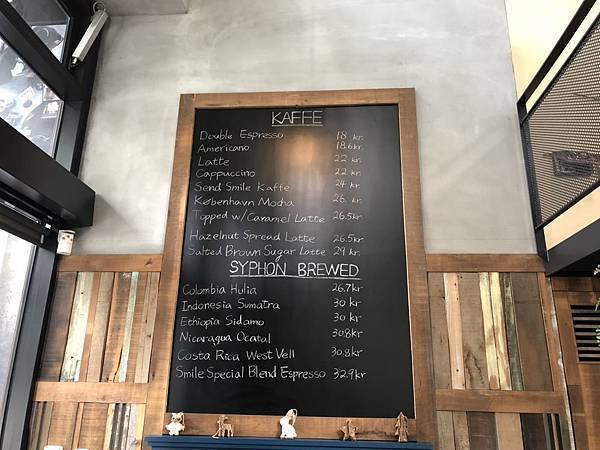 KAFFE
Double Espresso 18 kr.
Americano 18.6 kr.
Latte 22 kr.
Cappuccino 22 kr.
Send Smile Kaffe 24 kr.
København Mocha 26. kr.
Topped w/Caramel Latte 26.5 kr.
Hazelnut Spread Latte 26.5 kr.
Salted Brown Sugar Latte 29 kr.
SYPHON BREWED
Colombia Hulia 26.7 kr
Indonesia Sumatra 30 kr
Ethiopia Sidamo 30 kr
Nicaragua Ocatal 30.8 kr
Costa Rica West Vell 30.8 kr
Smile Special Blend Espresso 32.9 kr